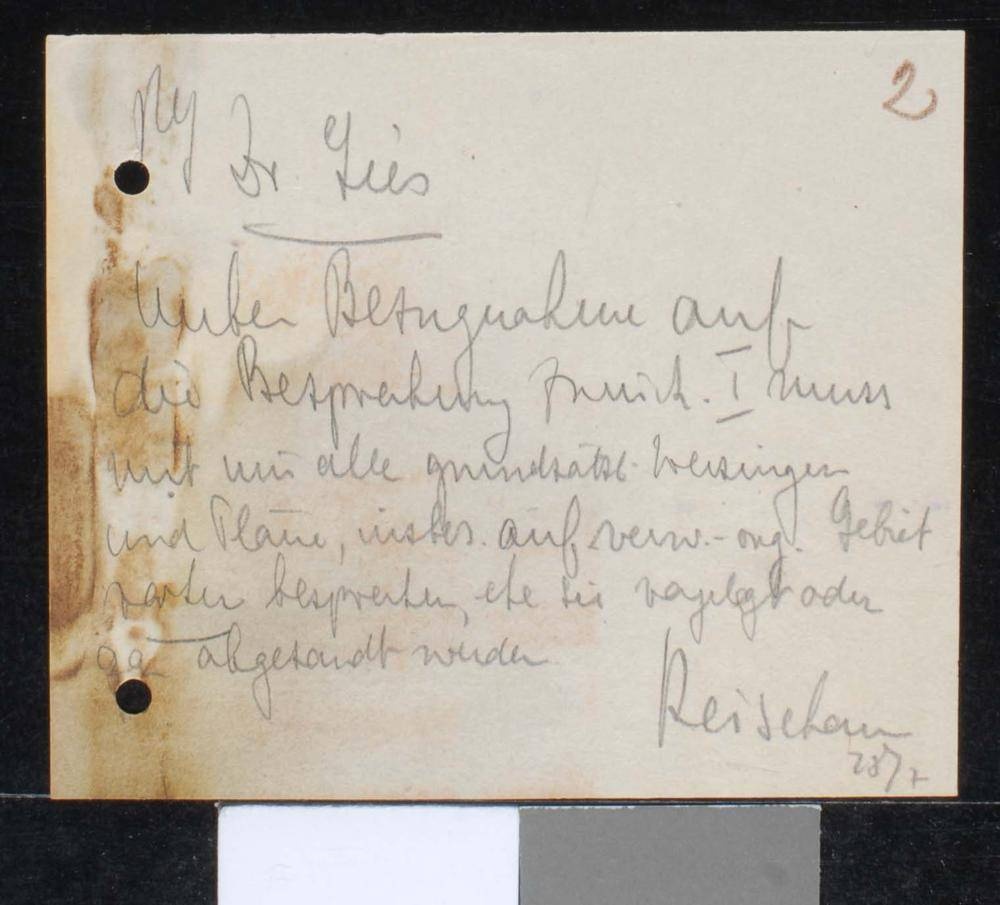 2
Dr. Gies
Unter Bezugnahme auf
die Besprechung zurück. I muss
mit mir alle grundsätzl. Weisungen
und Pläne, insbes. auf verw.-org. Gebiet
vorher besprechen, ehe sie vorgelegt oder
abgesandt werden
28/7